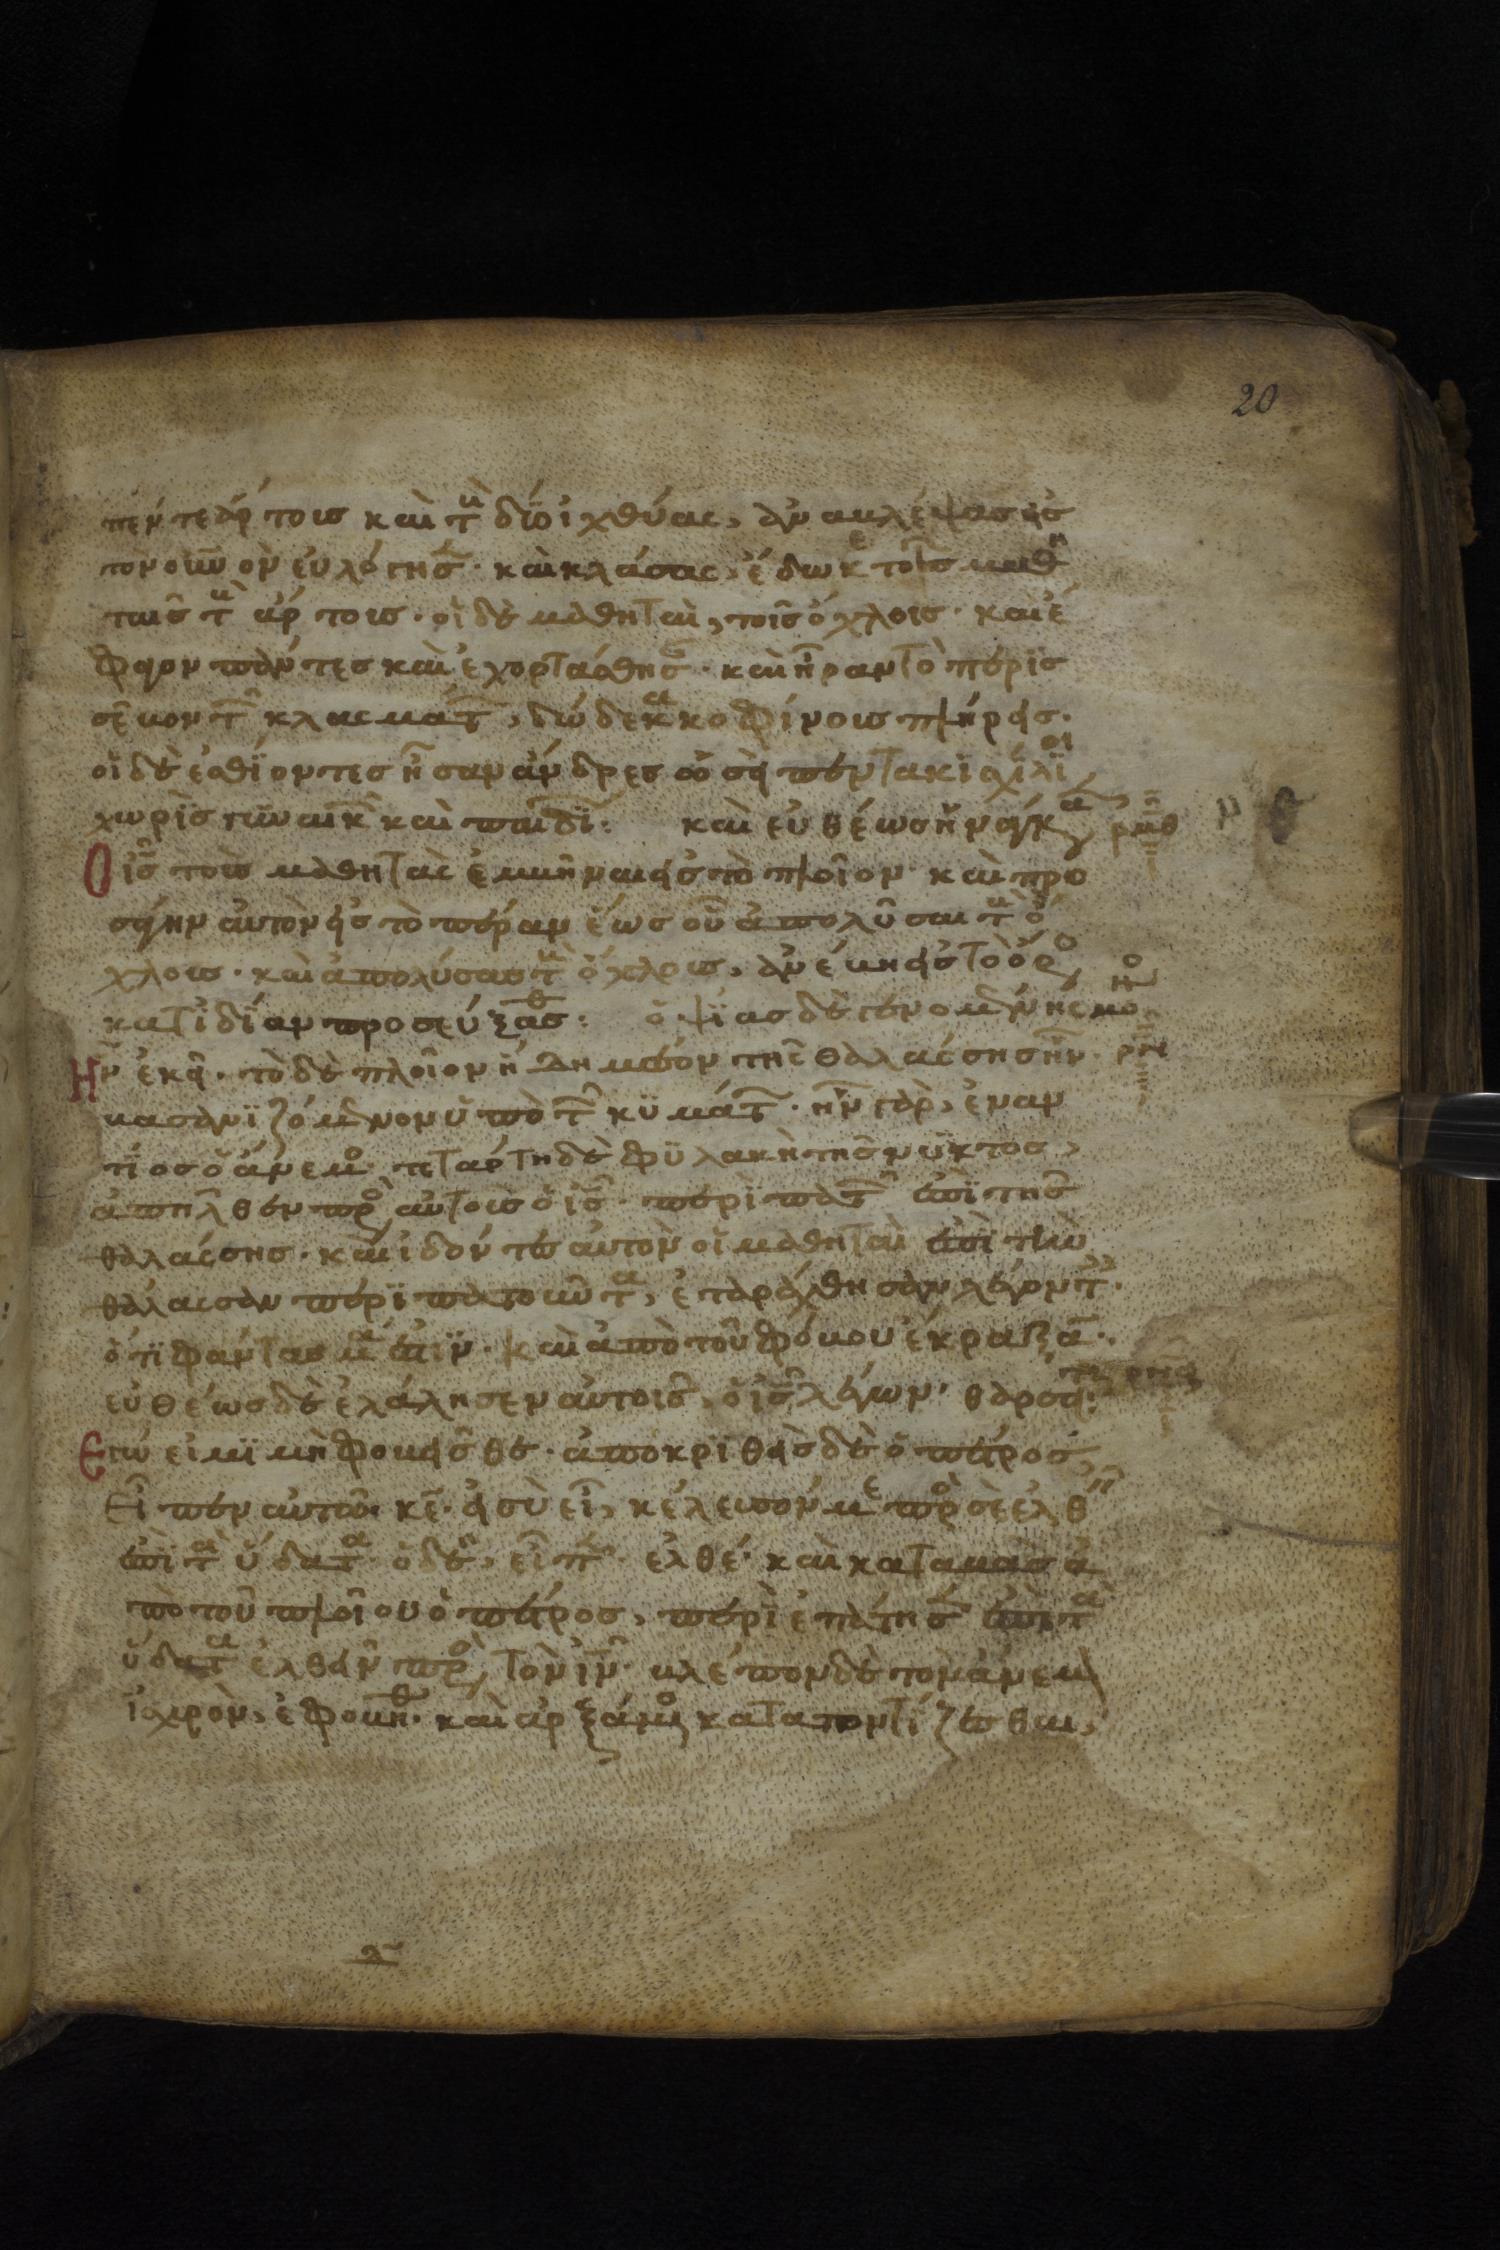 20
πέντε ἄρτους καὶ τοὺς δύο ἰχθύας, ἀναβλέψας εἰς
τὸν οὐνον εὐλόγησ· καὶ κλάσας, ἔδωκε τοῖς μαθη
ταῖς τοὺς ἄρτους· οἱ δὲ μαθηταὶ, τοῖς ὄχλοις· καὶ ἔ
φαγον πάντες καὶ ἐχορτάσθησαν· καὶ ἦραν τὸ περὶσ
σεῦον τῶν κλασμάτ, δώδεκα κοφίνους πλήρεις·
οἱ δὲ ἐσθίοντες ἦσαν ἄνδρες ὡσεὶ πεντακισχίλιοι
χωρὶς γυναικ καὶ παιδί: καὶ εὐθέως ἠνάγκα ρμθ
Ὁ ις τοὺς μαθητὰς ἐμβῆναι εἰς τὸ πλοῖον· καὶ προ
άγειν αὐτὸν εἰς τὸ πέραν ἕως οὗ ἀπολῦσαι τοὺς ὄ
χλους· καὶ ἀπολύσας τοὺς ὄχλους, ἀνέβη εἰς τὸ ὄρο
κατ ἰδίαν προσεύξασθ: ὀψίας δὲ γενομένης μό
Ἦν ἐκεῖ· τὸ δὲ πλοῖον ἤδη μέσον τῆς θαλάσσης ἦν· ρν
βασανιζόμενον ὑπὸ τῶν κυμάτ· ἦν γὰρ, ἐναν
τίος ὁ ἄνεμο· τετάρτη δὲ φυλακῆ τῆς νυκτος,
ἀπῆλθεν πρὸ αὐτοὺς ὁ ις· περιπατῶν ἐπὶ τῆς
θαλάσσης· καὶ ἰδόντες αὐτὸν οἱ μαθηταὶ ἐπὶ τὴν
θάλασσαν περιπατοῦντα, ἐταράχθησαν λέγοντ·
ὅτι φάντασμα ἐστιν· καὶ ἀπὸ τοῦ φόβου ἔκραξαν·
εὐθέως δὲ ἐλάλησεν αὐτοῖς, ὁ ις λέγων· θαρσεῖ:
Ἐγώ εἰμι μὴ φοβεῖσθε· ἀποκριθεὶς δὲ ὁ πέτρος,
Εἶπεν αὐτῶ· κε· εἰ σὺ εἶ, κέλευσόν με πρὸ σὲ ἐλθεῖν
ἐπὶ τὰ ὕδατα· ὁ δὲ, εἶπ· ἐλθέ· καὶ καταβὰς ἀ
πὸ τοῦ πλοίου ὁ πέτρος, περιεπάτησ ἐπὶ τὰ
ὕδατα ἐλθεῖν πρὸ τὸν ιν· βλέπον δὲ τὸν ἄνεμ
ἰσχυρὸν, ἐφοβήθ· καὶ ἀρξάμενο καταποντίζεσθαι,